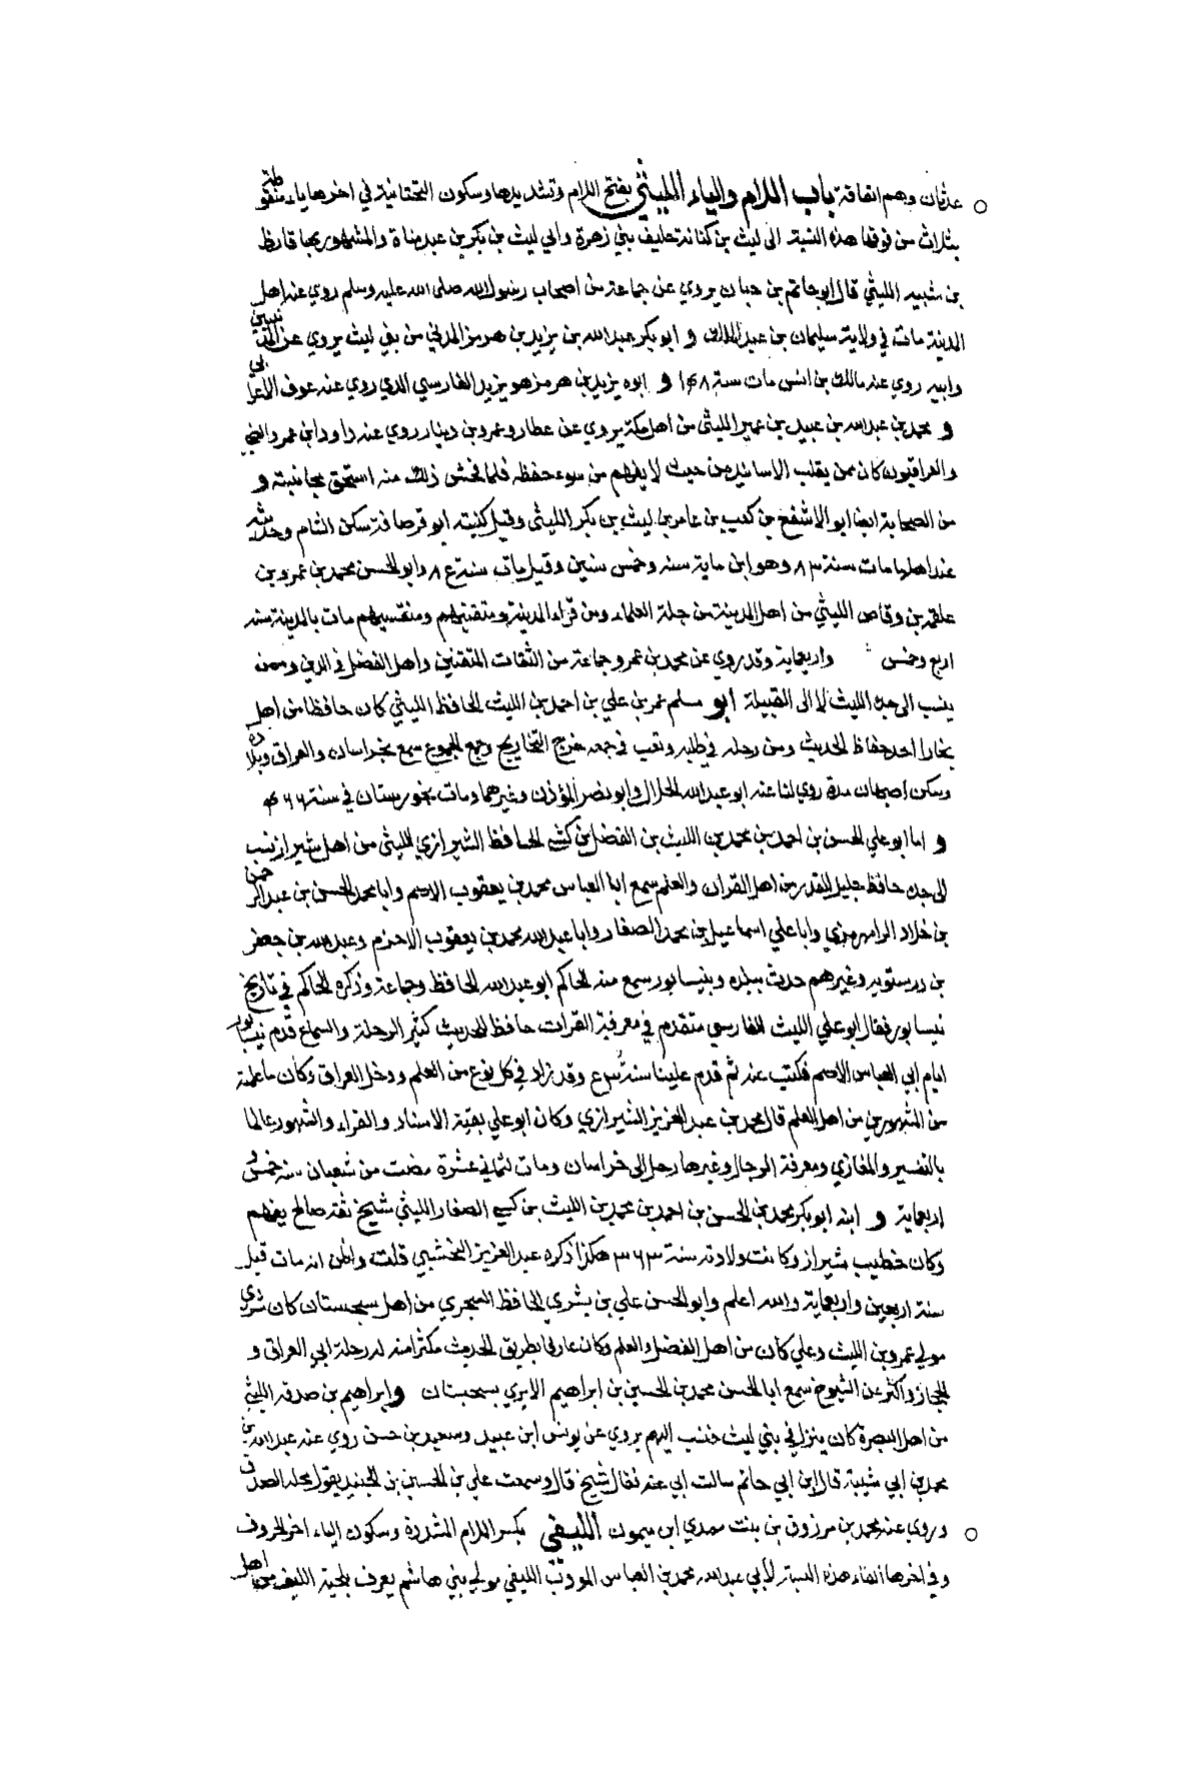 عدثان وهم اتفاقة باب اللام والياء الليثي بفتح اللام وتشديدها وسكون التحتانية في اخرها ياء منقوطة
بثلاث من فوقها هذه النسبة الى ليث بن كنانة حليف بني زهرة والى ليث بن بكر بن عبد مناة والمشهور بها قارظ
بن شبيه الليثي قال ابو حاتم بن حبان يروي عن جماعة من اصحاب رسول الله صلى الله عليه وسلم روي عنه اهل
المدينة مات في ولاية سليمان بن عبد الملك و ابو بكر عبد الله بن يزيد بن هرمز المدني من بني ليث يروي عن
وابيه روي عنه مالك بن انس مات سنة ١٤٨ و ابوه يزيد بن هرمز هو يزيد الفارسي الذي روي عنه عوف الاعرابي
و محمد بن عبد الله بن عبيد بن عمير الليثي من اهل مكة يروي عن عطا وعمرو بن دينار روي عنه داود ابن عمرو الضبي
والعراقيون كان ممن يقلب الاسانيد من حيث لا يفهم من سوء حفظه فلما فحش ذلك منه استحق مجانبته و
من الصحابة ايضا ابو الاسقع بن كعب بن عامر بن ليث بن بكر الليثي وقيل كنيته ابو قرصافة سكن الشام وحديثه
عند اهلها مات سنة ٨٣ وهو ابن ماية سنه وخمس سنين وقيل مات سنة ٨٤ وابو الحسن محمد بن عمرو بن
علقمة بن وقاص الليثي من اهل المدينة من جلة العلماء ومن قراء المدينة ومتقنيهم ومتقسيهم مات بالمدينة سنه
اربع وخمس واربعماية وقد روي عن محمد بن عمرو جماعة من الثقات المتقنين واهل الفضل في الدين وممن
ينسب الى جده الليث لا الى القبيلة ابو مسلم عمر بن علي بن احمد بن الليث الحافظ الليثي كان حافظا من اهل
بخارا احد حفاظ الحديث ومن رحل في طلبه وتعب في جمعه خرج التخاريج وجمع الجموع سمع بخراسان والعراق وبلاده
وسكن اصبهان مدة روي لنا عنه ابو عبد الله الخلال وابو نصر المؤذن وغيرهما ومات بخورستان في سنة ٤٦٦
و اما ابو علي الحسن بن احمد بن محمد بن الليث بن الفضل بن كشه الحافظ الشيرازي الليثي من اهل شيراز ينسب
الى جده حافظ جليل القدر من اهل القران والعلم سمع ابا العباس محمد بن يعقوب الاصم وابا محمد الحسن بن عبد الرحمن
بن خلاد الرامهرمزي وابا علي اسماعيل بن محمد الصفار وابا عبد الله محمد بن يعقوب الاخرم وعبد الله بن جعفر
بن درستويه وغيرهم حدث ببلده وبنيسابور سمع منه الحاكم ابو عبد الله الحافظ وجماعة وذكره الحاكم في تاريخ
نيسابور فقال ابو علي الليث الفارسي متقدم في معرفة القراات حافظ للحديث كثير الرحلة والسماع قدم نيسابور
ايام ابي العباس الاصم فكتب عنه ثم قدم علينا سنة وقد زاد في كل نوع من العلم ودخل العراق وكان ما علمته
من المشهورين من اهل العلم قال محمد بن عبد العزيز الشيرازي وكان ابو علي بقية الاسناد والقراء والشهود عالما
بالتفسير والمغازي ومعرفة الرجال وغيرها رحل الى خراسان ومات لثماني عشرة مضت من شعبان سنة خمس و
اربعماية و ابنه ابو بكر محمد بن الحسن بن احمد بن محمد بن الليث بن كسه الصفار الليثي شيخ ثقه صالح يفهم
وكان خطيب شيراز وكانت ولادته سنة ٣٦٣ هكذا ذكره عبد العزيز النخشبي قلت واظن انه مات قبل
سنة اربعين واربعماية والله اعلم وابو الحسن علي بن بشري الحافظ السجزي من اهل سجستان كان شري
مولى عمرو بن الليث وعلي كان من اهل الفضل والعلم وكان عارفا بطريق الحديث مكثرا منه له رحلة الى العراق و
الحجاز واكثر عن الشيوخ سمع ابا الحسن محمد بن الحسين بن ابراهيم الابري بسجستان وابراهيم بن صدقة الليثي
من اهل البصرة كان ينزل في بني ليث فنسب اليهم يروي عن يونس ابن عبيد وسعيد بن حسن روي عنه عبد الله بن
محمد بن ابي شيبة قال ابن ابي حاتم سالت ابي عنه فقال شيخ قال وسمعت علي بن الحسين بن الجنيد يقول محله الصدق
وروي عنه محمد بن مرزوق بن بنت مهدي ابن ميمون الليفي بكسر اللام المشددة وسكون الياء اخر الحروف
وفي اخرها الفاء هذه النسبة لابي عبد الله محمد بن العباس المودب الليفي مولى بني هاشم يعرف بلحية الليف من اهل